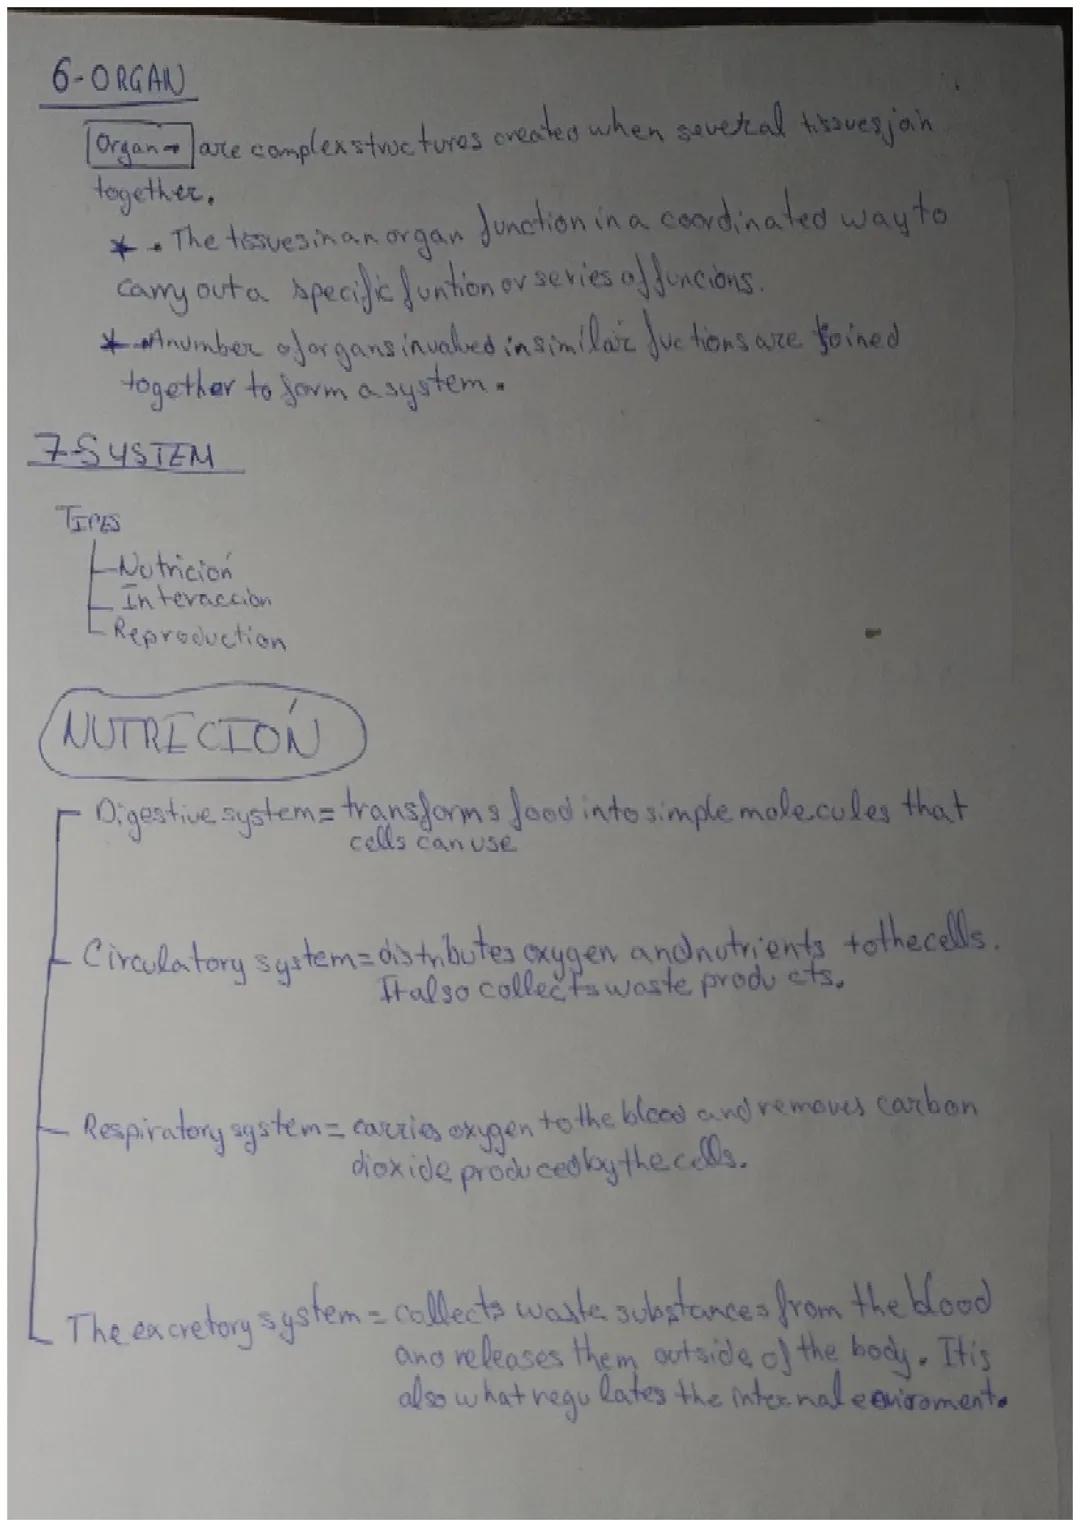 6-ORGAN
Organ→ are complex structures created when several tissues join
together.
* • The tissues in an organ function in a coordinated way to
carry out a specific funtion or series of funcions.
* • A number of organs involved in similar fuctions are joined
together to form a system.
7-SYSTEM
TIPES
Nutrición
Interaccion
Reproduction
NUTRICIÓN
Digestive system= transforms food into simple molecules that
cells can use
Circulatory system= distributes oxygen and nutrients to the cells.
It also collects waste products.
Respiratory system= carries oxygen to the blood and removes carbon
dioxide produced by the cells.
The excretory system = collects waste substances from the blood
and releases them outside of the body. It is
also what regulates the internal enviroment.